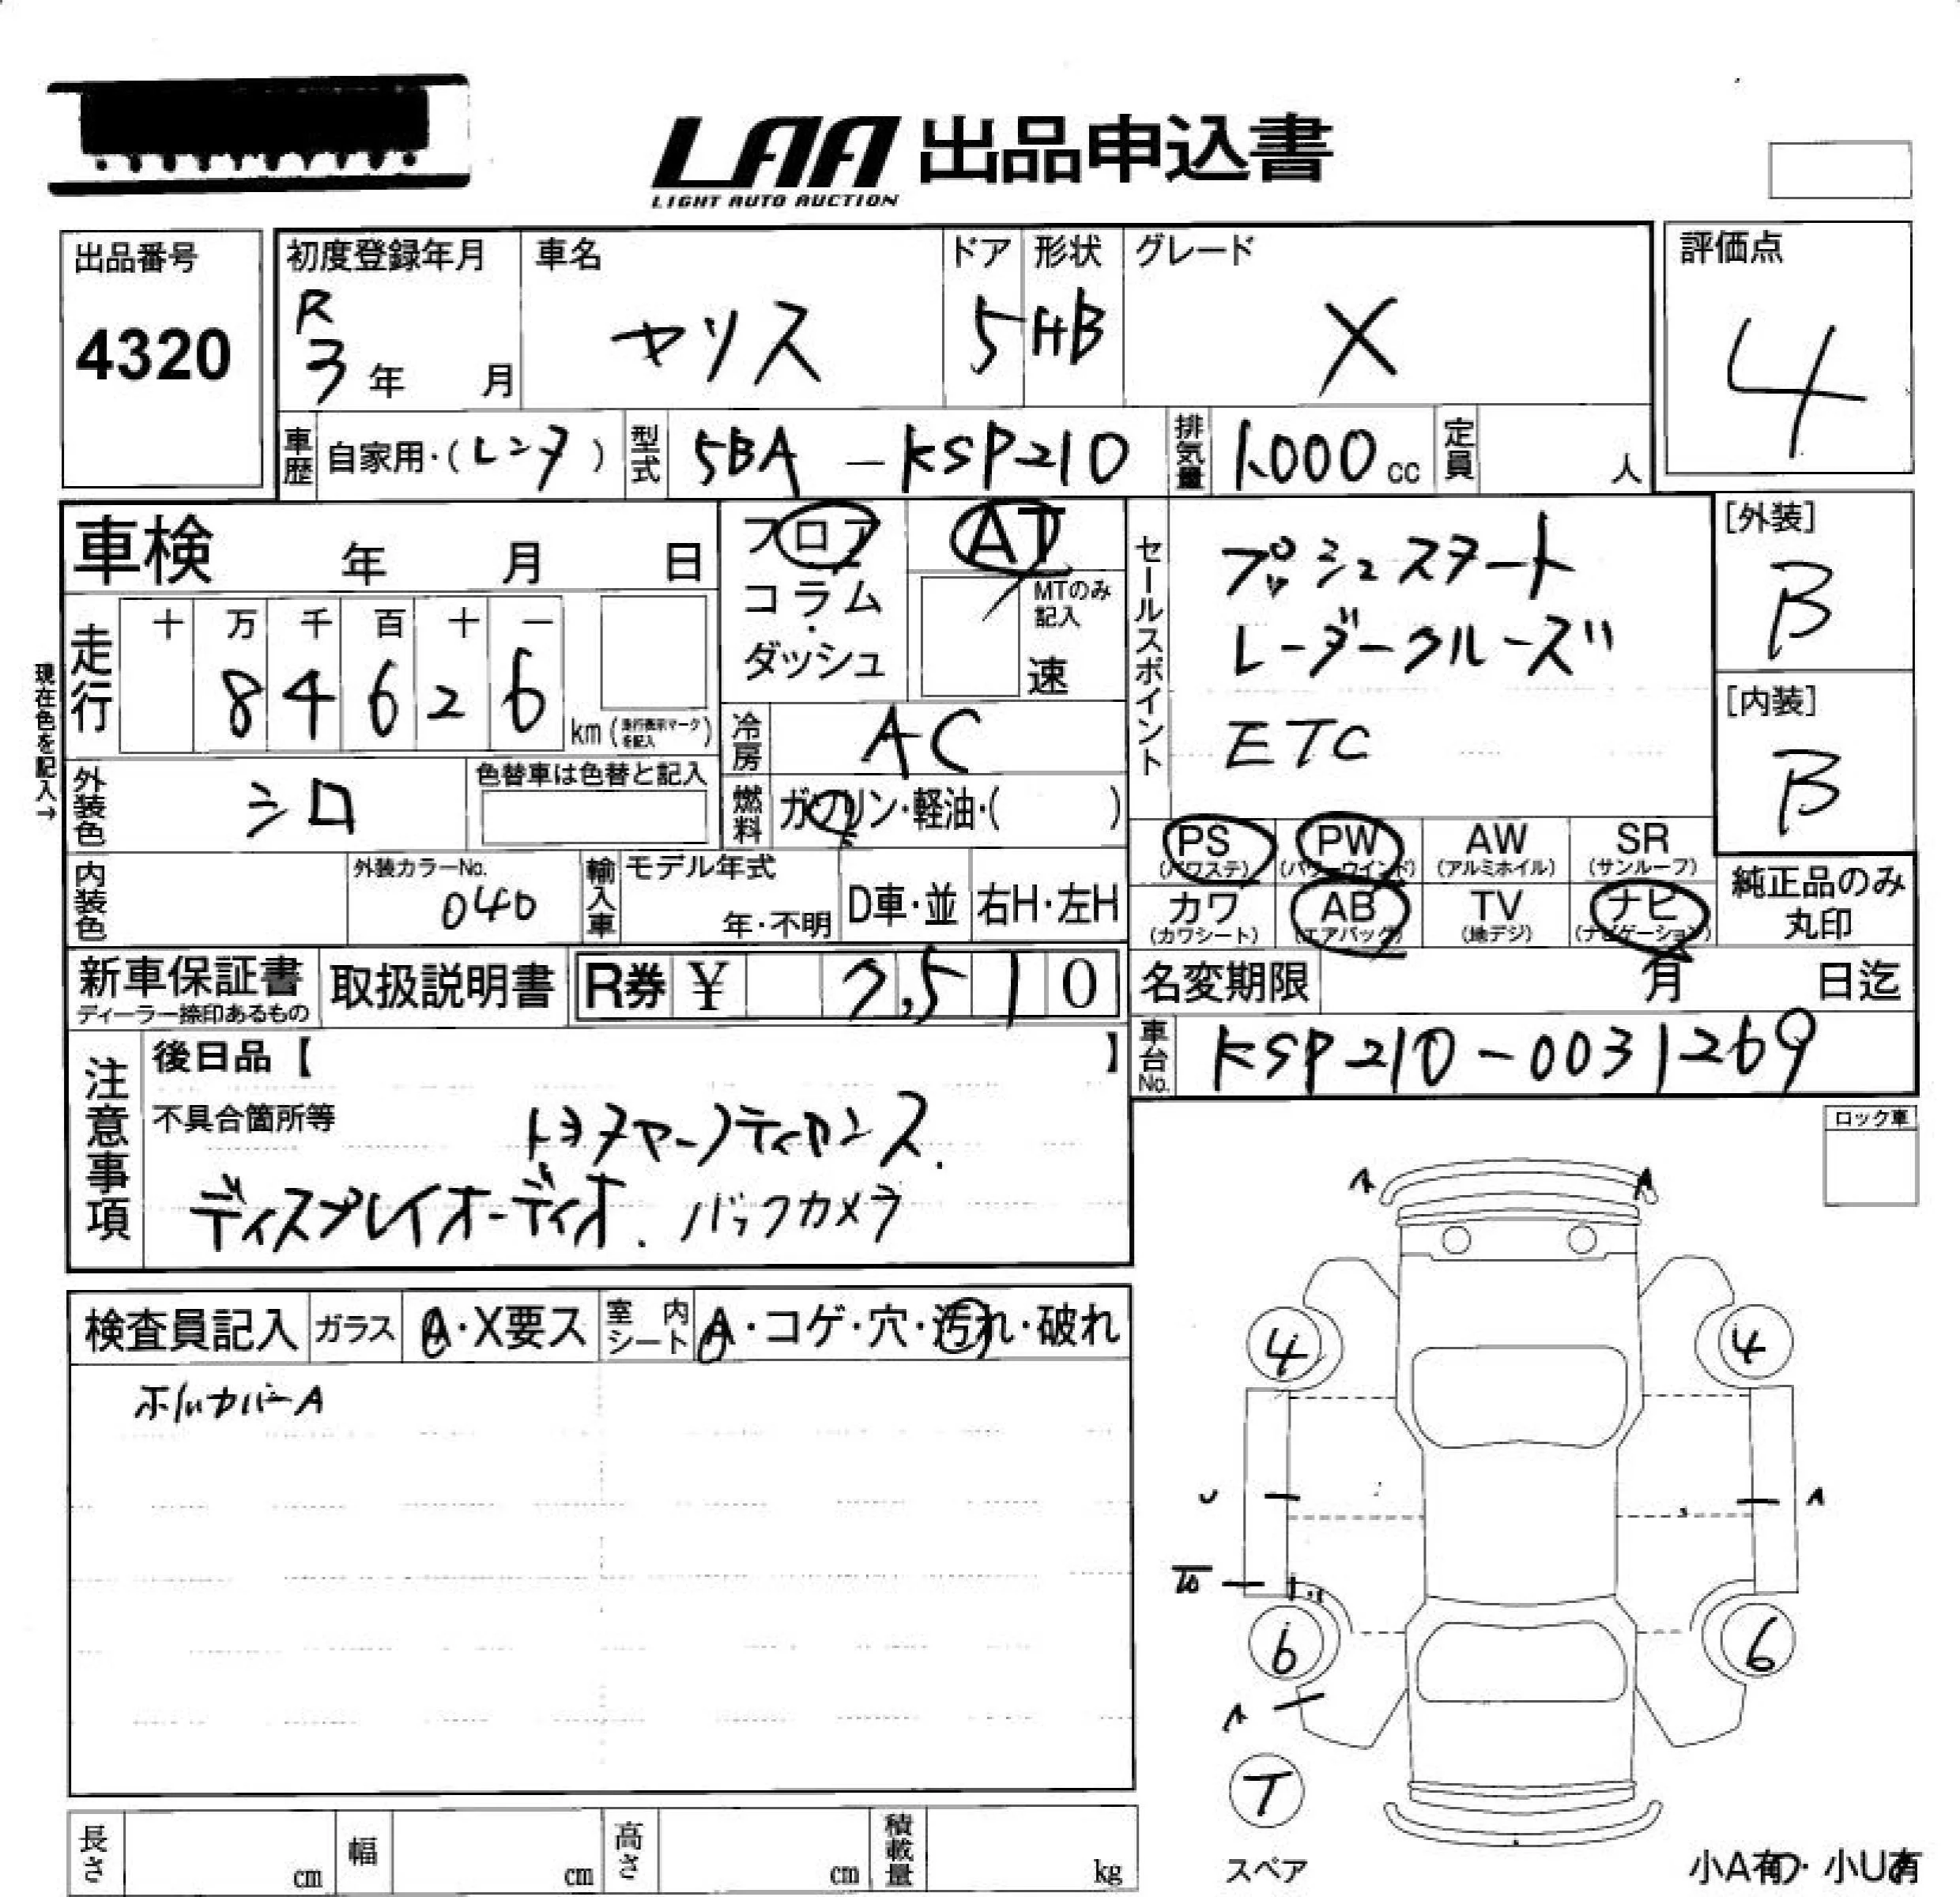 LAA 出品申込書
LIGHT AUTO AUCTION
出品番号
4320
初度登録年月
R
3 年 月
車名
ヤリス
ドア
5
形状
HB
グレード
X
評価点
4
車歴
自家用・(レンタ)
型式
5BA - KSP210
排気量
1,000 cc
定員
人
車検 年 月 日
フロア
コラム
・
ダッシュ
AT
MTのみ
記入
速
セールスポイント
プッシュスタート
レーダークルーズ
ETC
[外装]
B
[内装]
B
現在色を記入→
走行
十 万 千 百 十 一
8 4 6 2 6
km (走行表示マークを記入)
冷房
AC
外装色
シロ
色替車は色替と記入
燃料
ガソリン・軽油・( )
PS
(パワステ)
PW
(パワーウインド)
AW
(アルミホイル)
SR
(サンルーフ)
カワ
(カワシート)
AB
(エアバッグ)
TV
(地デジ)
ナビ
(ナビゲーション)
純正品のみ
丸印
内装色
外装カラーNo.
040
輸入車
モデル年式
年・不明
D車・並
右H・左H
新車保証書
ディーラー捺印あるもの
取扱説明書
R券 ¥ 7,510
名変期限 月 日迄
車台No.
KSP210-0031269
注意事項
後日品【 】
不具合箇所等
ディスプレイオーディオ. バックカメラ
ロック車
検査員記入
ガラス
A・X要ス
室内シート
A・コゲ・穴・汚れ・破れ
A
A
4
4
U
A
6
6
A
T
スペア
長さ
cm
幅
cm
高さ
cm
積載量
kg
小A有・小U有